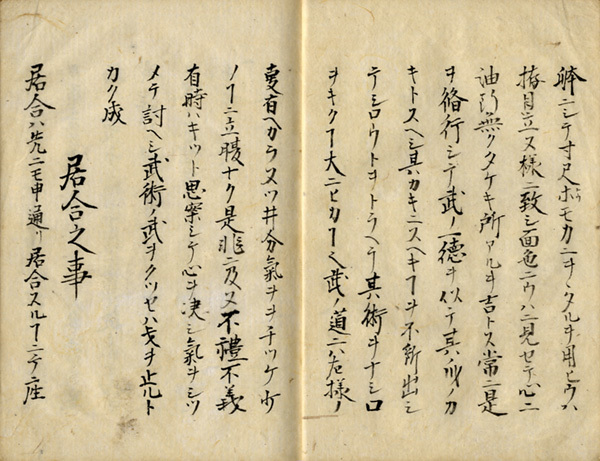 躰ニシテ寸尺ホモカニヲヽタルヲ用ヒウハ
抜目立ヌ様ニ致シ面色ニウハニ見セテ心ニ
油断無クタケキ所アルヲ吉トス常ニ是
ヲ修行シテ武ノ一徳ヲ以テ其
キトスヘシ其カキニスヘキヿヲ不所出シ
テシロウトヲトラヘテ其術ヲナシロ
ヲキクヿ大ニヒカヿ也武ノ道ニハ左様ノ
叓有ヘカラヌ氣ヲヲチツケ少
ノヿニ立腹ナク是非ニ及ヌ不禮不義
有時ハキット思案シテ心ヲ決シ氣ヲシツ
メテ討ヘシ武術ノ武ヲクツセハ戈ヲ止ルト
カク成
居合之事
居合ハ先ニモ申通リ居合スルヿニテ座